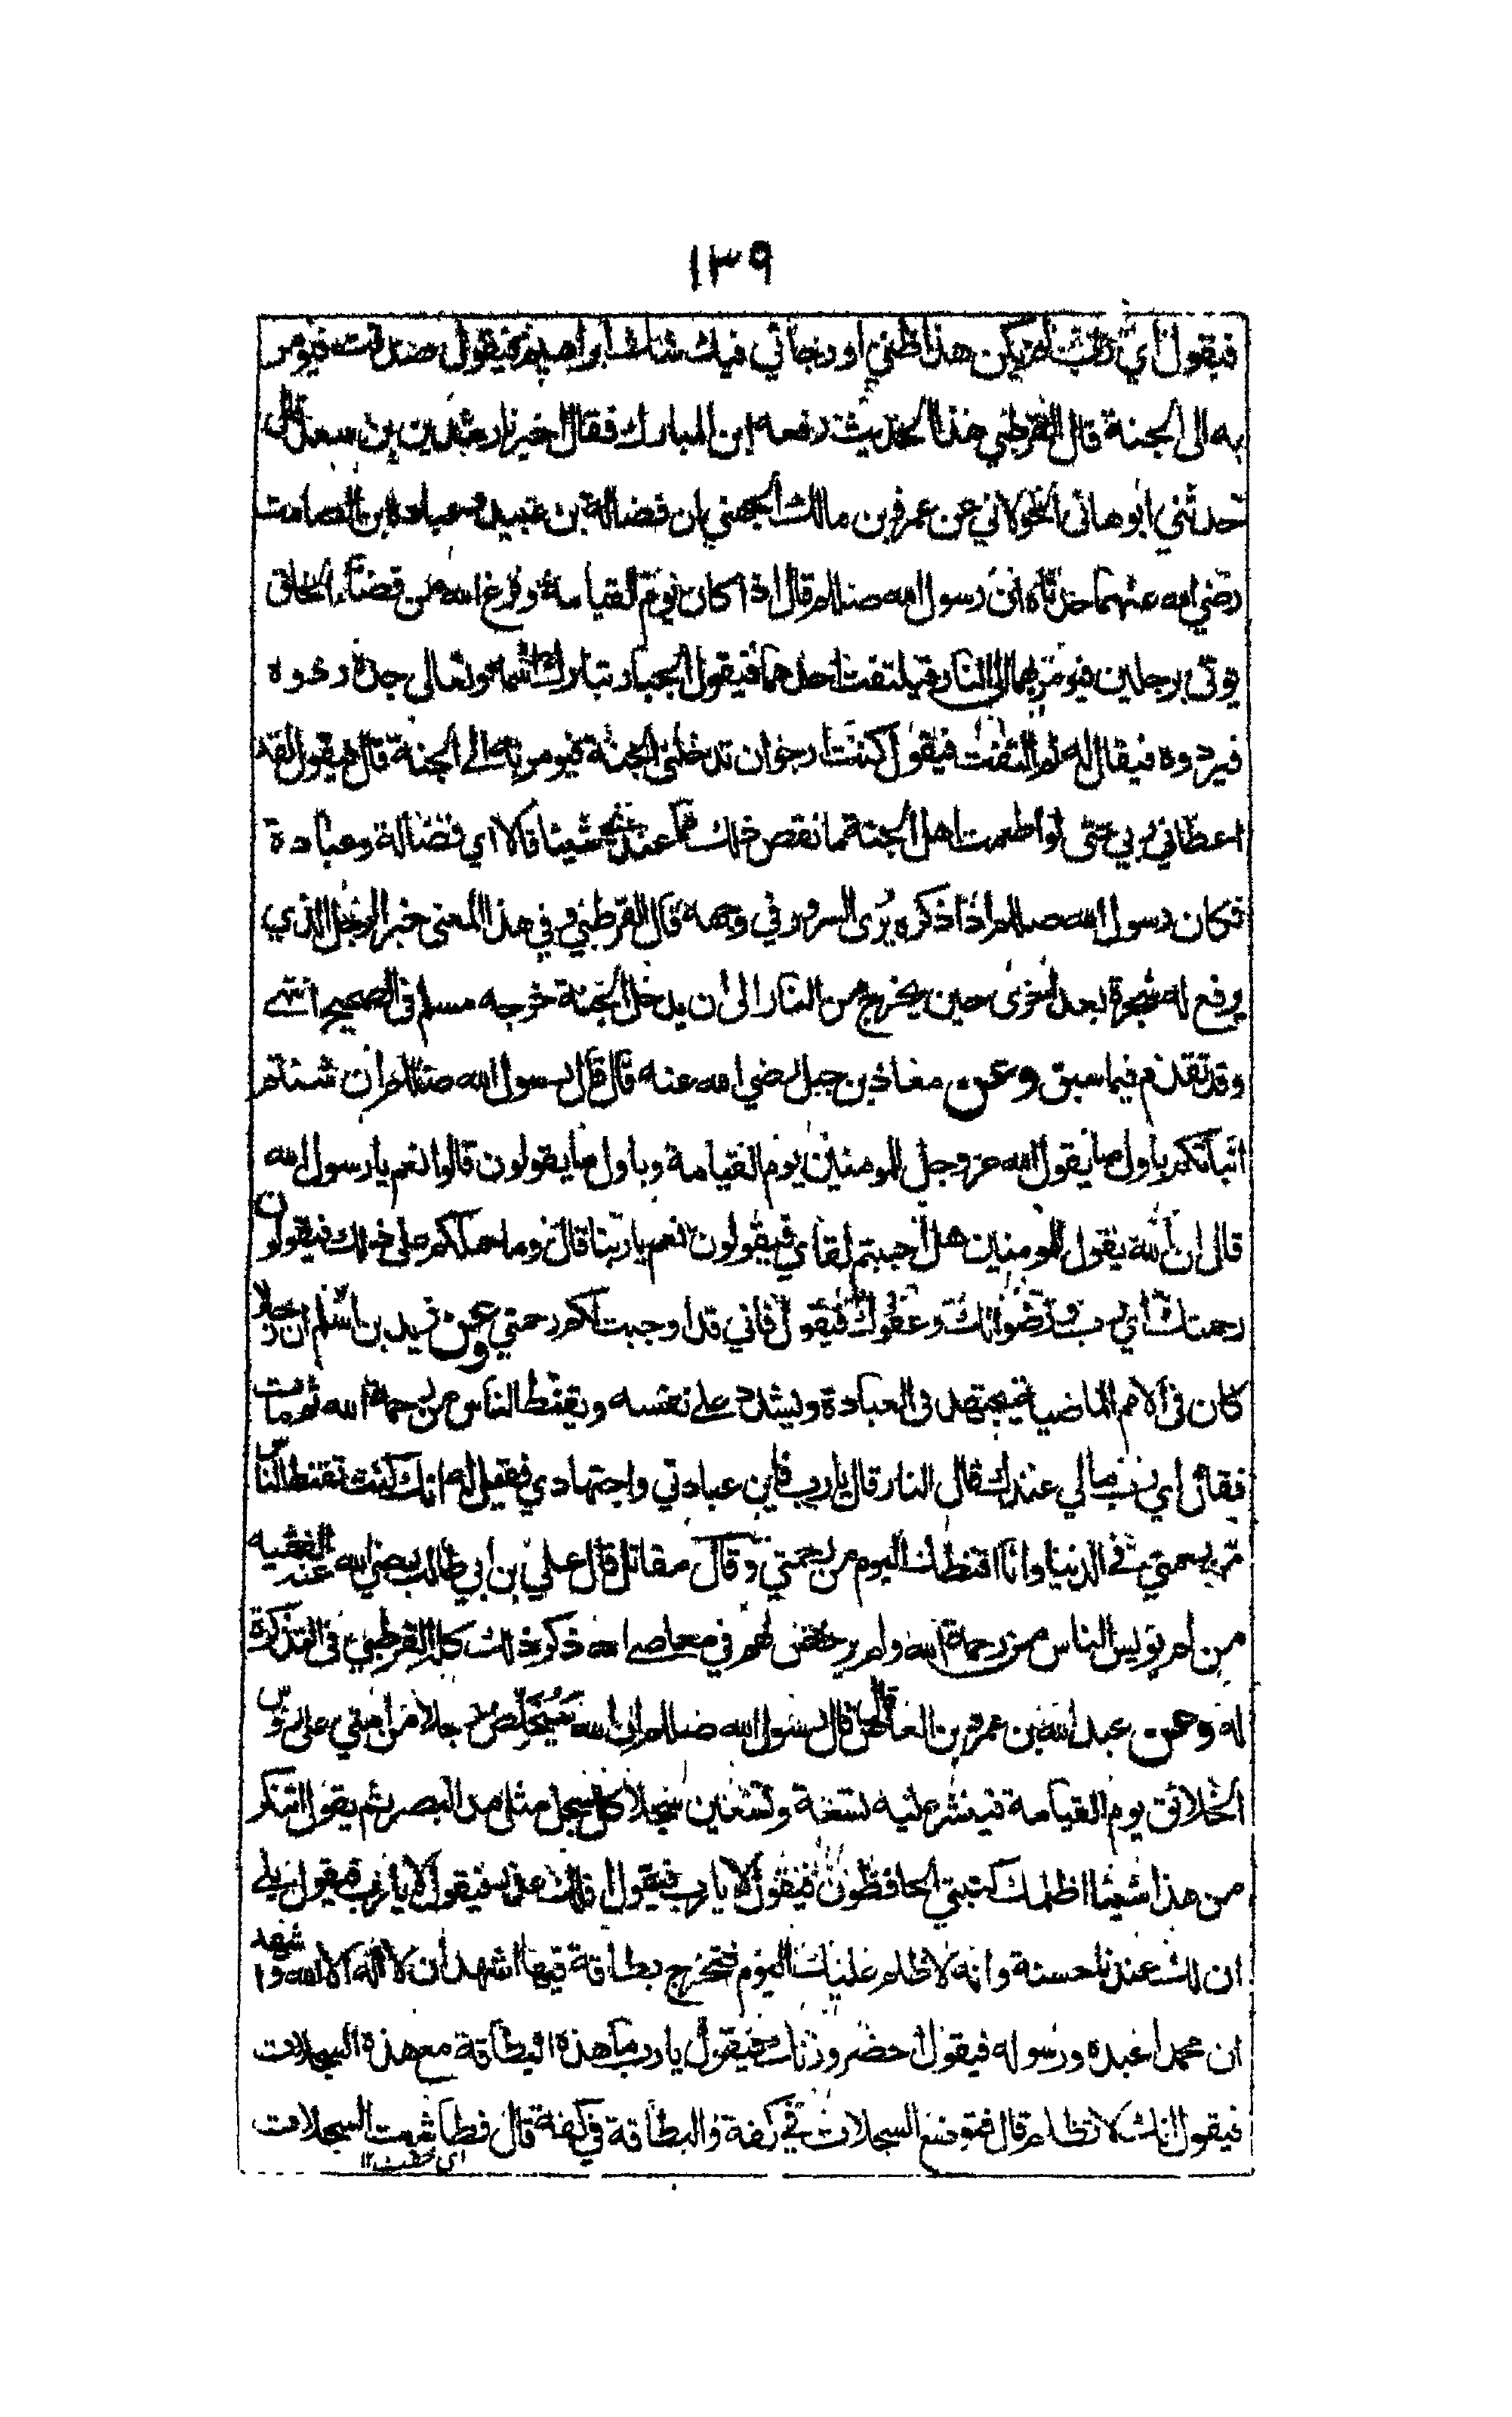 ١٣٩
فيقول اي رب لم يكن هذا ظني او رجائي فيك شك ابراهيم فيقول صدقت فيومر
به الى الجنة قال القرطبي هذا الحديث رفعه ابن المبارك فقال اخبرنا رشدين بن سعد قال
حدثني ابو هانئ الخولاني عن عمرو بن مالك الجهني ان فضالة بن عبيد وعبادة ابن الصامت
رضي الله عنهما حدثاه ان رسول الله صللم قال اذا كان يوم القيامة وفرغ الله من قضاء الخلق
يوتى برجلين فيومر بهما الى النار فيلتفت احدهما فيقول الجبار تبارك اسمه وتعالى جده ردوه
فيردوه فيقال له لم التفت فيقول كنت ارجو ان تدخلني الجنة فيومر به الى الجنة قال فيقول لقد
اعطاني ربي حتى لو اطعمت اهل الجنة ما نقص ذلك مما عندي شيئا قالا اي فضالة وعبادة
فكان رسول الله صللم اذا ذكره يُرى السرور في وجهه قال القرطبي وفي هذا المعنى خبر الرجل الذي
يرفع له شجرة بعد اخرى حين يخرج من النار الى ان يدخل الجنة خرجه مسلم في الصحيح انتهى
وقد تقدم فيما سبق وعن معاذ بن جبل رضي الله عنه قال قال رسول الله صللم ان شئتم
انبأتكم باول ما يقول الله عز وجل للمومنين يوم القيامة وباول ما يقولون قالوا نعم يا رسول الله
قال ان الله يقول للمومنين هل احببتم لقائي فيقولون نعم يا ربنا قال وما حملكم على ذلك فيقولون
رحمتك اي رب ورضوانك وعفوك فيقول فاني قد اوجبت لكم رحمتي وعن زيد بن اسلم ان رجلا
كان في الامم الماضية يجتهد في العبادة ويشدد على نفسه ويقنط الناس من رحمة الله ثم مات
فقال اي رب ما لي عندك قال النار قال يا رب فاين عبادتي واجتهادي فقيل له انك كنت تقنط الناس
من رحمتي في الدنيا وانا اقنطك اليوم من رحمتي وقال مقاتل قال علي بن ابي طالب رضي الله عنه الفقيه
من لم يويس الناس من رحمة الله ولم يرخص لهم في معاصي الله ذكر ذلك كله القرطبي في التذكرة
له وعن عبد الله بن عمرو بن العاص قال قال رسول الله صللم ان الله سَيُخَلِّصُ رجلا من امتي على رؤس
الخلائق يوم القيامة فينشر عليه تسعة وتسعين سجلا كل سجل مثل مد البصر ثم يقول اتنكر
من هذا شيئا اظلمك كتبتي الحافظون فيقول لا يا رب فيقول افلك عذر فيقول لا يا رب فيقول بلى
ان لك عندنا حسنة وانه لا ظلم عليك اليوم فتخرج بطاقة فيها اشهد ان لا اله الا الله واشهد
ان محمدا عبده ورسوله فيقول احضر وزنك فيقول يا رب ما هذه البطاقة مع هذه السجلات
فيقول انك لا تظلم قال فتوضع السجلات في كفة والبطاقة في كفة قال فطاشت السجلات
اي خفت ١٢